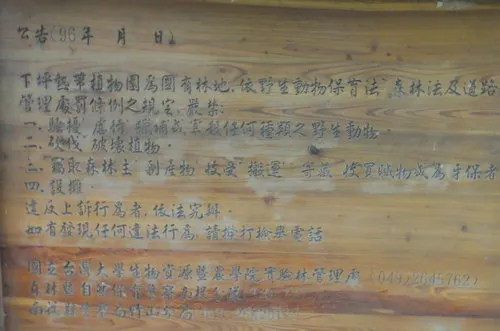 公告(96年 月 日)
下坪熱帶植物園為國有林地,依野生動物保育法、森林法及道路
管理處罰條例之規定,嚴禁:
一.騷擾、虐待、獵捕或宰殺任何種類之野生動物。
二.砍伐、破壞植物。
三.竊取森林主、副產物、收受、搬運、寄藏、故買贓物或為牙保者
四.設攤。
違反上訴行為者,依法究辦。
如有發現任何違法行為,請撥打檢舉電話
國立台灣大學生物資源暨農學院實驗林管理處 (049)2645762
森林暨自然保育警察隊
南投縣警察局竹山分局